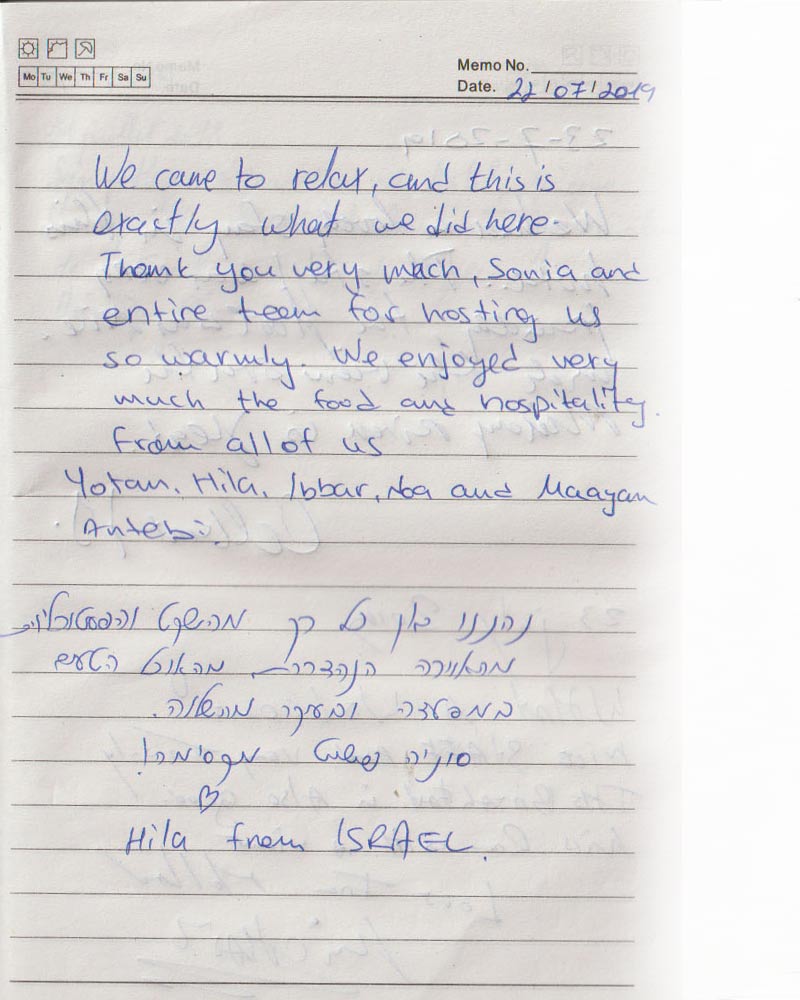 Mo Tu We Th Fr Sa Su
Memo No.
Date. 22/07/2019
We came to relax, and this is
exactly what we did here.
Thank you very much, Sonia and
entire team for hosting us
so warmly. We enjoyed very
much the food and hospitality.
From all of us
Yotam, Hila, Inbar, Noa and Maayan
Antebi.
נהננו כאן כל כך מהשקט והפסטורליות
מהאוירה הנהדרת מהאוכל הטעים
במסעדה ובעיקר מהשלווה.
סוניה פשוט מקסימה!
Hila from ISRAEL.